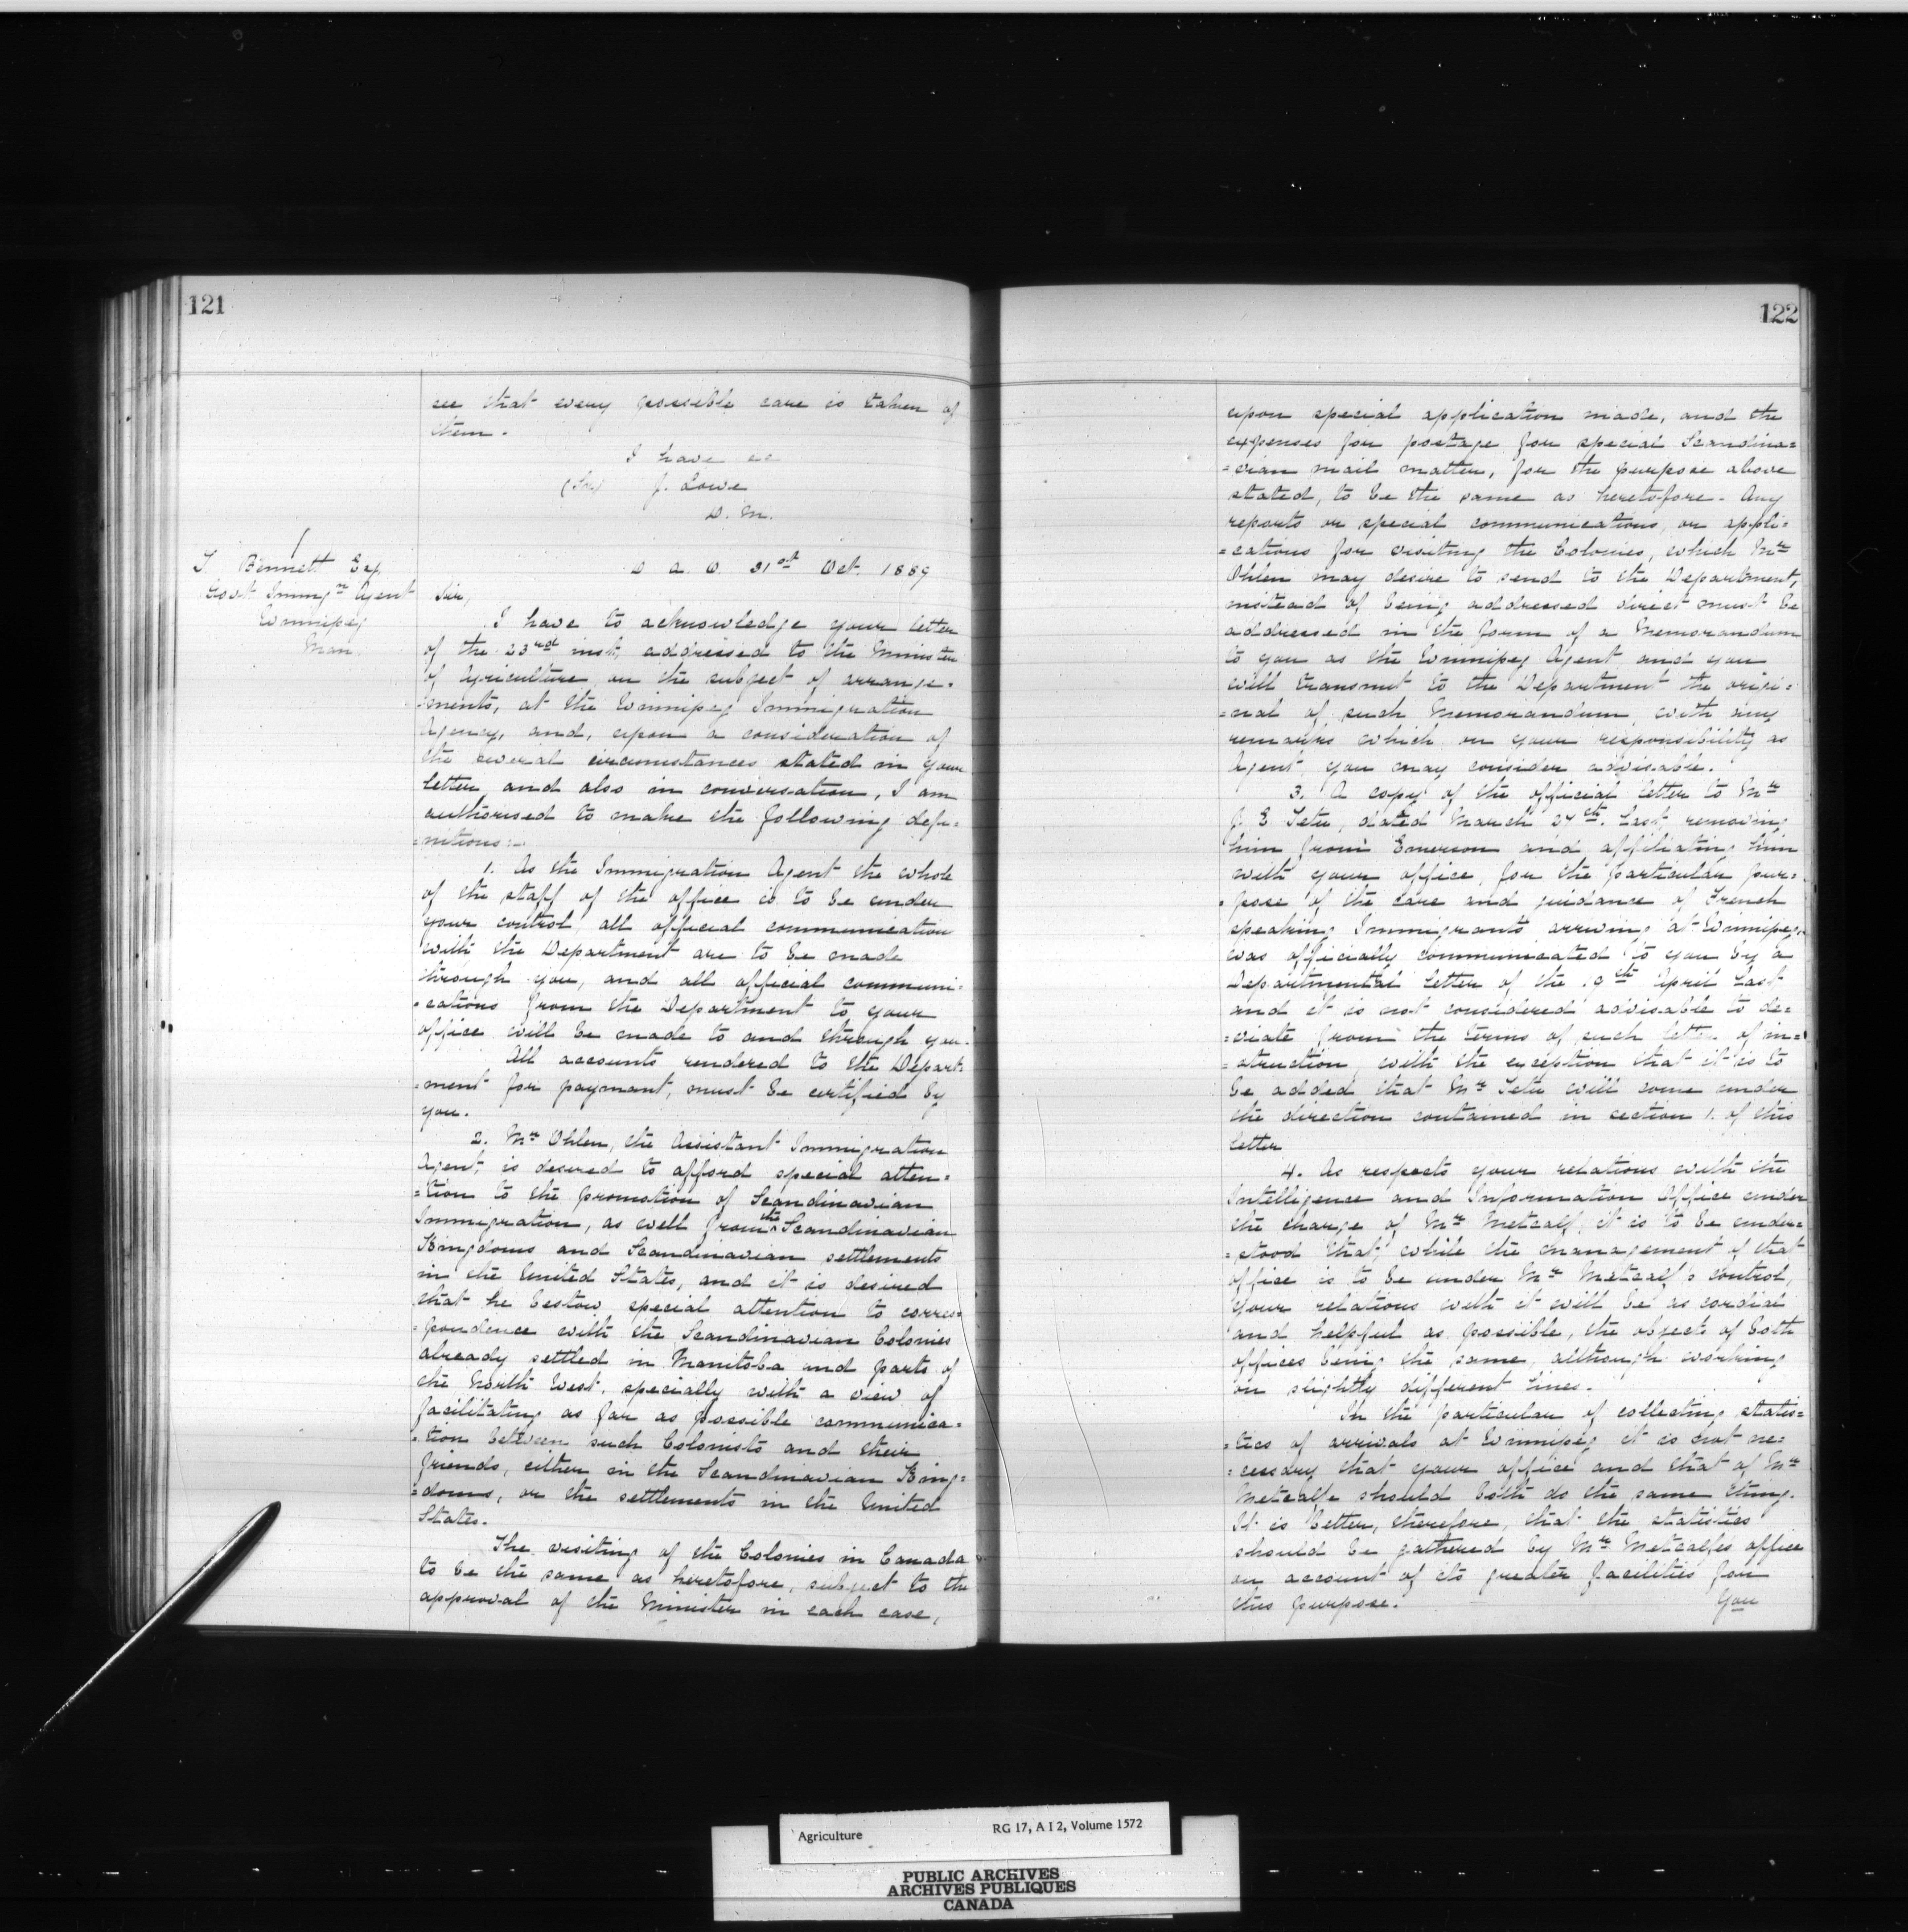 121
see that every possible care is taken of
them.
I have &c
(Sd) J. Lowe
D. M.
T. Bennett Esq
Govt Immign Agent
Winnipeg
Man.
D. A. O. 31st Oct. 1889
Sir,
I have to acknowledge your letter
of the 23rd inst, addressed to the Minister
of Agriculture, on the subject of arrange-
=ments, at the Winnipeg Immigration
Agency, and, upon a consideration of
the several circumstances stated in your
letter and also in conversation, I am
authorised to make the following defi=
=nitions:-
1. As the Immigration Agent the whole
of the staff of the office is to be under
your control, all official communication
with the Department are to be made
through you, and all official communi=
=cations from the Department to your
office will be made to and through you.
All accounts rendered to the Depart-
=ment for payment, must be certified by
you.
2. Mr Ohlen, the Assistant Immigration
Agent, is desired to afford special atten=
=tion to the promotion of Scandinavian
Immigration, as well from the Scandinavian
Kingdoms and Scandinavian settlements
in the United States, and it is desired
that he bestow special attention to corres=
=pondence with the Scandinavian Colonies
already settled in Manitoba and parts of
the North West, specially with a view of
facilitating as far as possible communica=
=tion between such Colonists and their
friends, either in the Scandinavian King=
=doms, or the settlements in the United
States.
The visiting of the Colonies in Canada
to be the same as heretofore, subject to the
approval of the Minister in each case,
122
upon special application made, and the
expenses for postage for special Scandina=
=vian mail matter, for the purpose above
stated, to be the same as heretofore. Any
reports or special communications, or appli=
=cations for visiting the Colonies, which Mr
Ohlen may desire to send to the Department,
instead of being addressed direct must be
addressed in the form of a Memorandum
to you as the Winnipeg Agent and you
will transmit to the Department the origi=
=nal of such Memorandum, with any
remarks which on your responsibility as
Agent, you may consider advisable.
3. A copy of the official letter to Mr
J. E Tetu, dated March 27th. last, removing
him from Emerson and affiliating him
with your office, for the particular pur=
=pose of the care and guidance of French
speaking Immigrants arriving at Winnipeg,
was officially communicated to you by a
Departmental letter of the 9th April last
and it is not considered advisable to de=
=viate from the terms of such letter of in=
=struction, with the exception that it is to
be added that Mr Tetu will come under
the direction contained in section 1. of this
letter
4. As respects your relations with the
Intelligence and Information Office under
the charge of Mr Metcalf, it is to be under=
=stood that, while the management of that
office is to be under Mr Metcalf's control,
your relations with it will be as cordial
and helpful as possible, the objects of both
offices being the same, although working
on slightly different lines.
In the particular of collecting statis=
=tics of arrivals at Winnipeg it is not ne=
=cessary that your office and that of Mr
Metcalfe should both do the same thing.
It is better, therefore, that the statistics
should be gathered by Mr Metcalfes office
on account of its greater facilities for
this purpose.
You
Agriculture
RG 17, A I 2, Volume 1572
PUBLIC ARCHIVES
ARCHIVES PUBLIQUES
CANADA